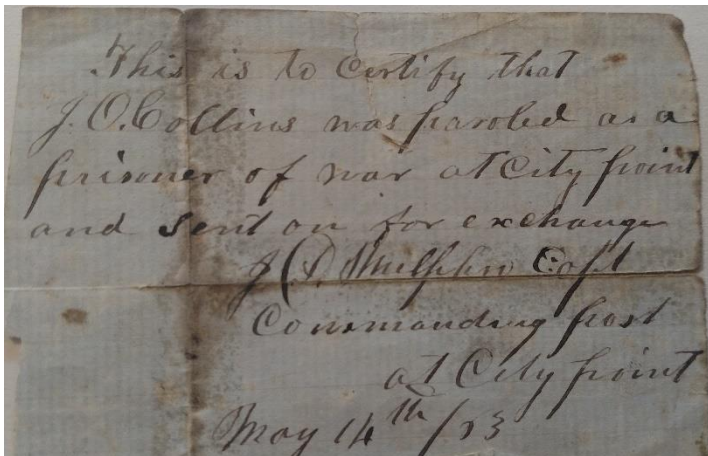 This is to Certify that
J. O. Collins was paroled as a
prisoner of war at City point
and sent on for exchange
J. Capt
Commanding post
at City point
May 14th /63